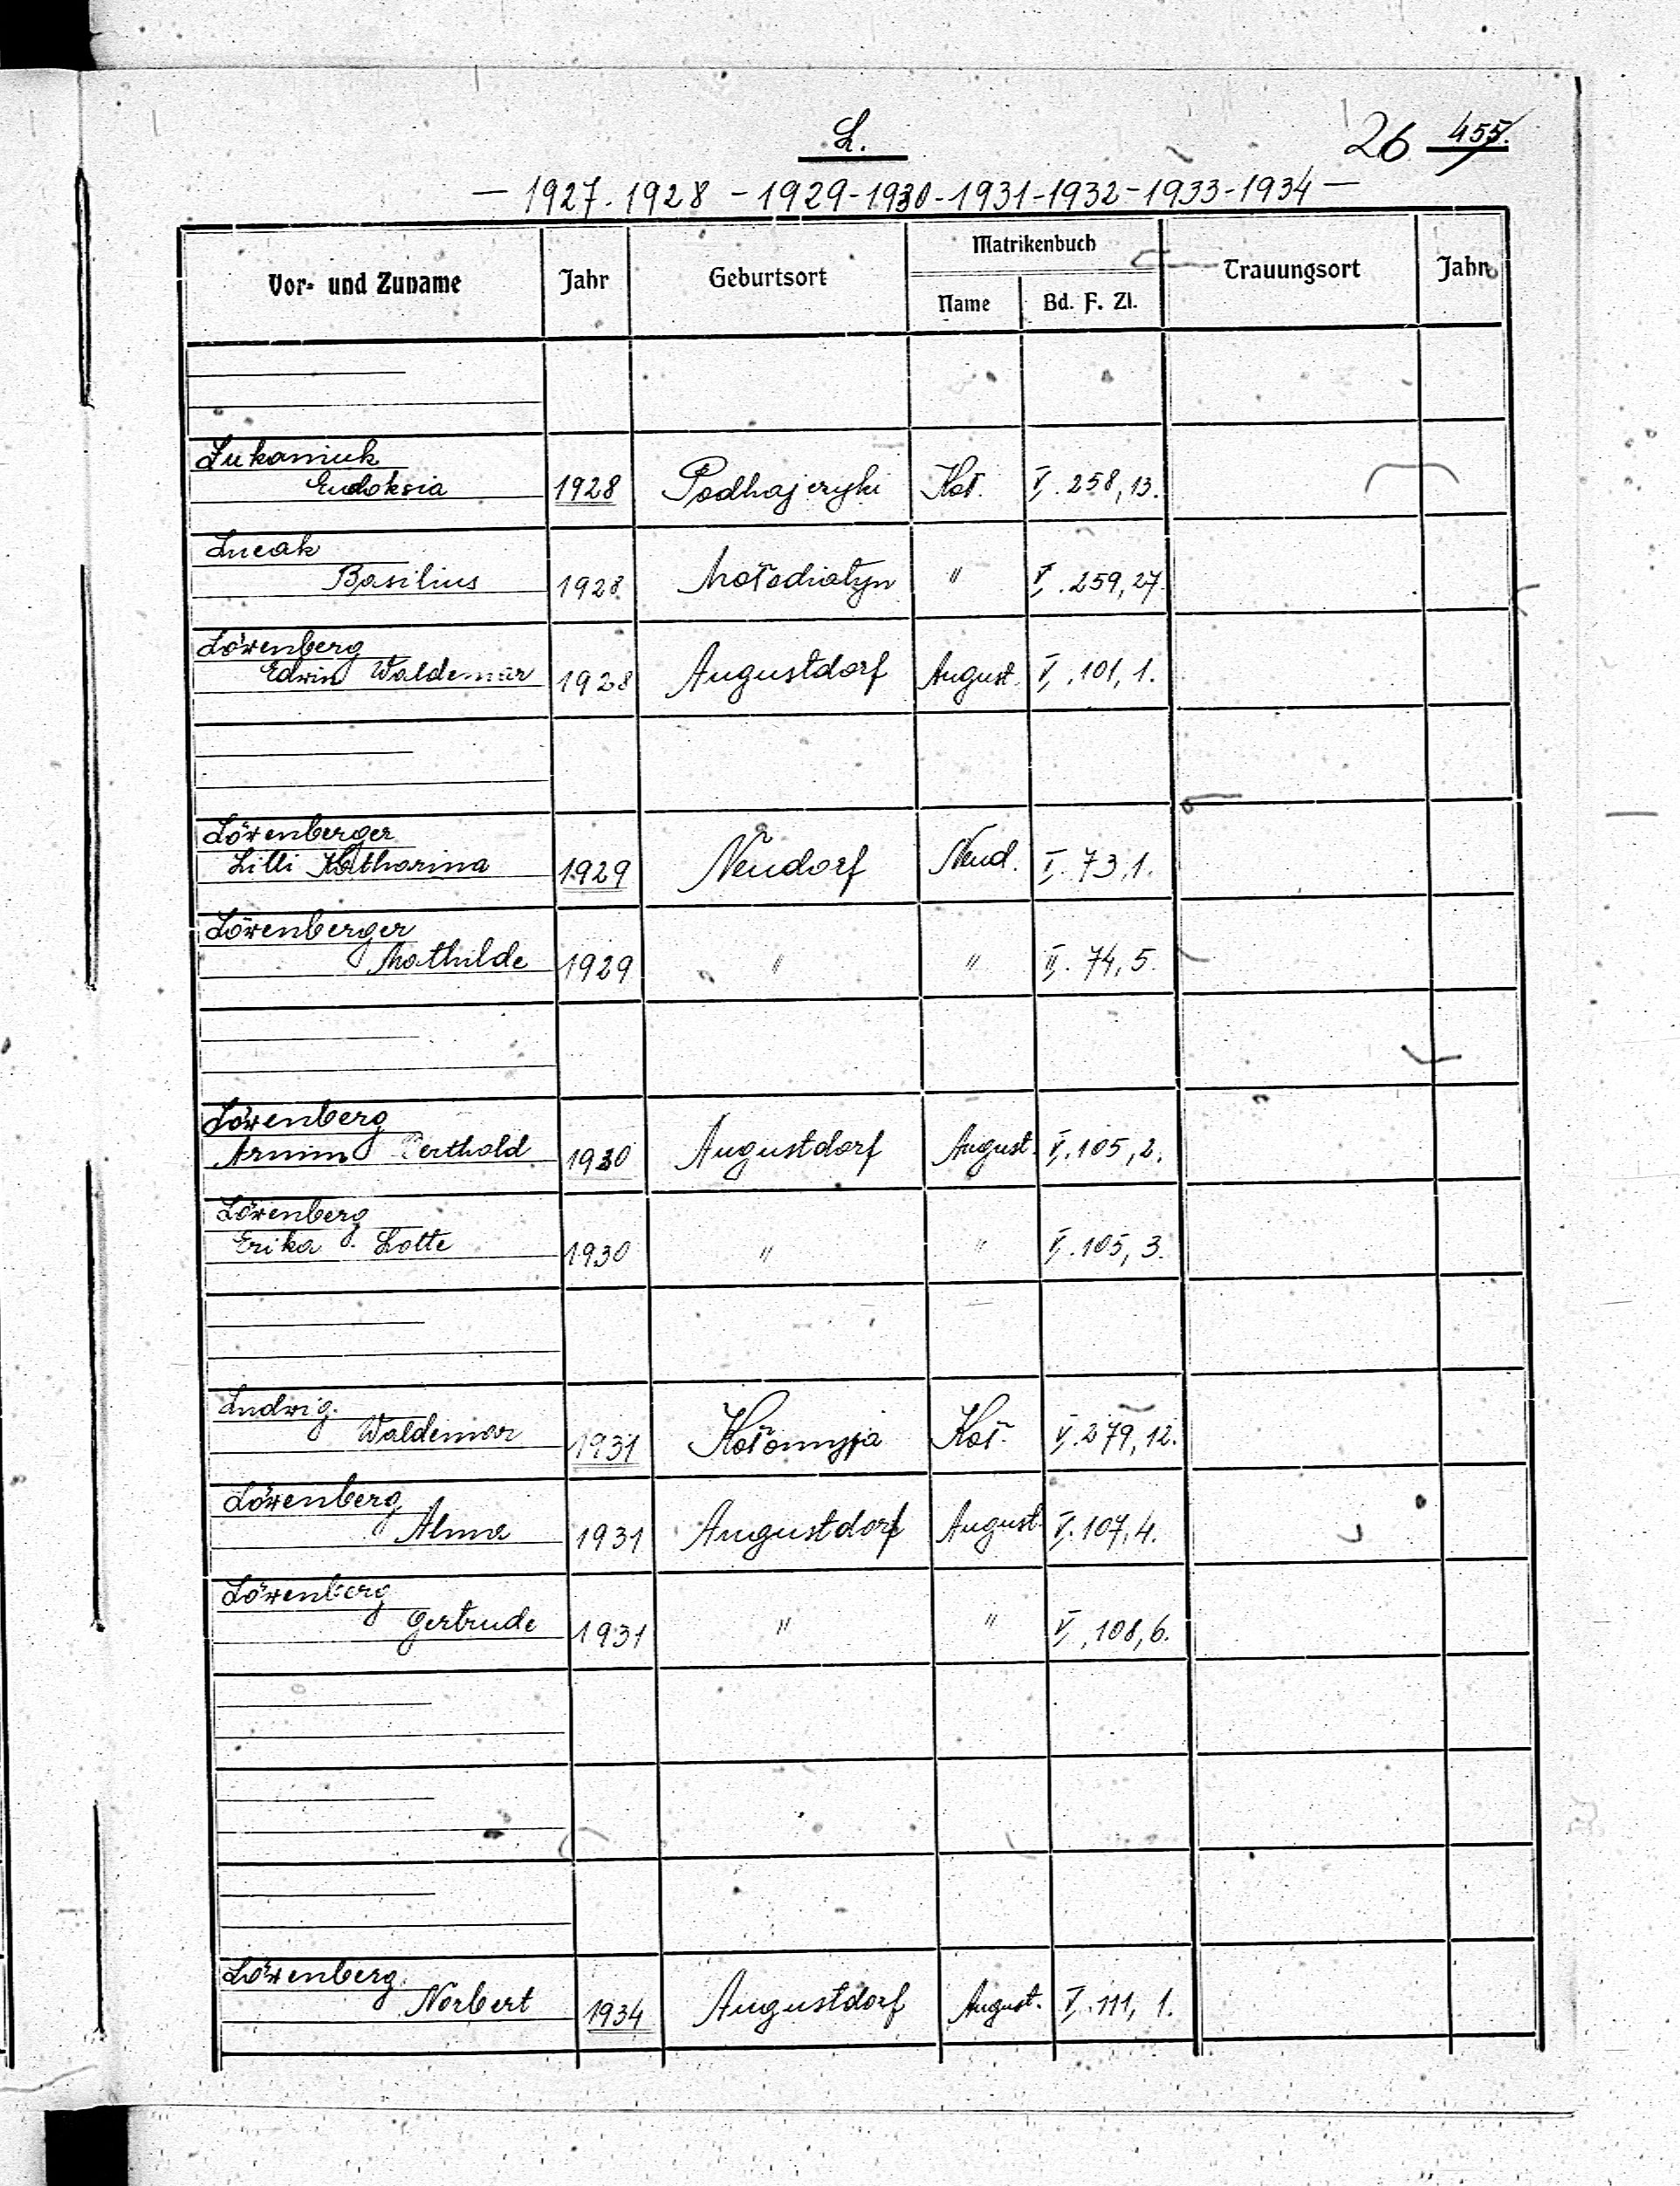 L.
26 455.
— 1927. 1928 - 1929-1930-1931-1932-1933-1934 —
Vor- und Zuname Jahr Geburtsort Matrikenbuch Trauungsort Jahr
Name Bd. F. Zl.
Łukaniuk
Eudoksia 1928 Podhajczyki Koł. V. 258, 13.
Lucak
Basilius 1928 Mołodiatyn " V. 259, 27.
Löwenberg
Edwin Waldemar 1928 Augustdorf August. V. 101, 1.
Löwenberger
Lilli Katharina 1929 Neudorf Neud. V. 73, 1.
Löwenberger
Mathilde 1929 " " V. 74, 5.
Löwenberg
Armin Berthold 1930 Augustdorf August. V. 105, 2.
Löwenberg
Erika Lotte 1930 " " V. 105, 3.
Ludwig
Waldemar 1931 Kołomyja Koł. V. 279, 12.
Löwenberg
Alma 1931 Augustdorf August. V. 107, 4.
Löwenberg
Gertrude 1931 " " V. 108, 6.
Löwenberg
Norbert 1934 Augustdorf August. V. 111, 1.